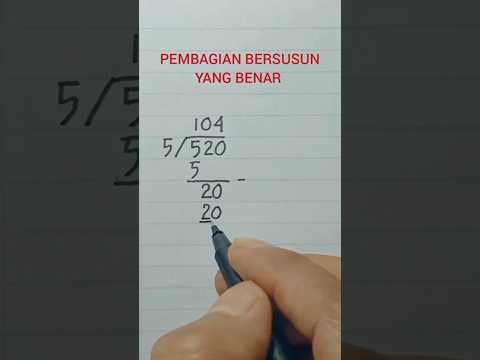 PEMBAGIAN BERSUSUN
YANG BENAR
104
5/520
5
20 -
20